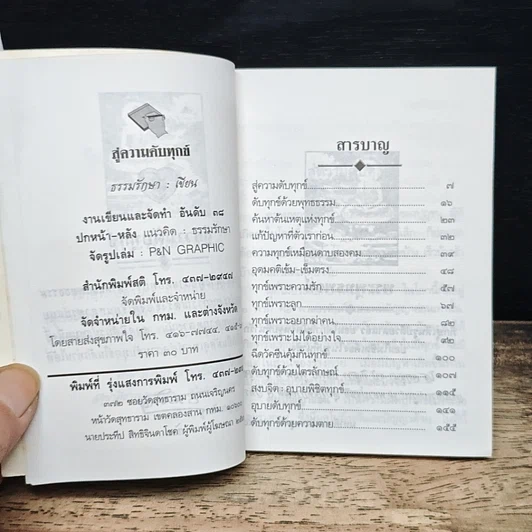 สู่ความดับทุกข์
ธรรมรักษา : เขียน
งานเขียนและจัดทำ อันดับ ๓๘
ปกหน้า-หลัง แนวคิด : ธรรมรักษา
จัดรูปเล่ม : P&N GRAPHIC
สำนักพิมพ์สติ โทร. ๔๓๗-๒๙๔๗
จัดพิมพ์และจำหน่าย
จัดจำหน่ายใน กทม. และต่างจังหวัด
โดยสายส่งสุขภาพใจ โทร. ๔๑๖-๗๗๔๔,
ราคา ๓๐ บาท
พิมพ์ที่ รุ่งแสงการพิมพ์ โทร. ๔๓๗-
๓๗๒ ซอยวัดสุทธาราม ถนนเจริญนคร
หน้าวัดสุทธาราม เขตคลองสาน กทม.
นายประทีป สิทธิจินดาโชค ผู้พิมพ์ผู้โฆษณา
สารบาญ
สู่ความดับทุกข์ ๗
ดับทุกข์ด้วยพุทธธรรม ๑๖
ค้นหาต้นเหตุแห่งทุกข์ ๒๓
แก้ปัญหาที่ตัวเราก่อน ๓๒
ความทุกข์เหมือนดาบสองคม ๓๙
อุดมคติเข้ม-เข็มตรง ๔๘
ทุกข์เพราะความรัก ๕๗
ทุกข์เพราะลูก ๖๗
ทุกข์เพราะอยากฆ่าคน ๘๒
ทุกข์เพราะไม่ได้อย่างใจ ๙๒
ฉีดวัคซีนคุ้มกันทุกข์ ๑๐๐
ดับทุกข์ด้วยไตรลักษณ์ ๑๐๗
สงบจิต : อุบายพิชิตทุกข์
อุบายดับทุกข์ ๑๔๑
ดับทุกข์ด้วยความตาย ๑๕๕